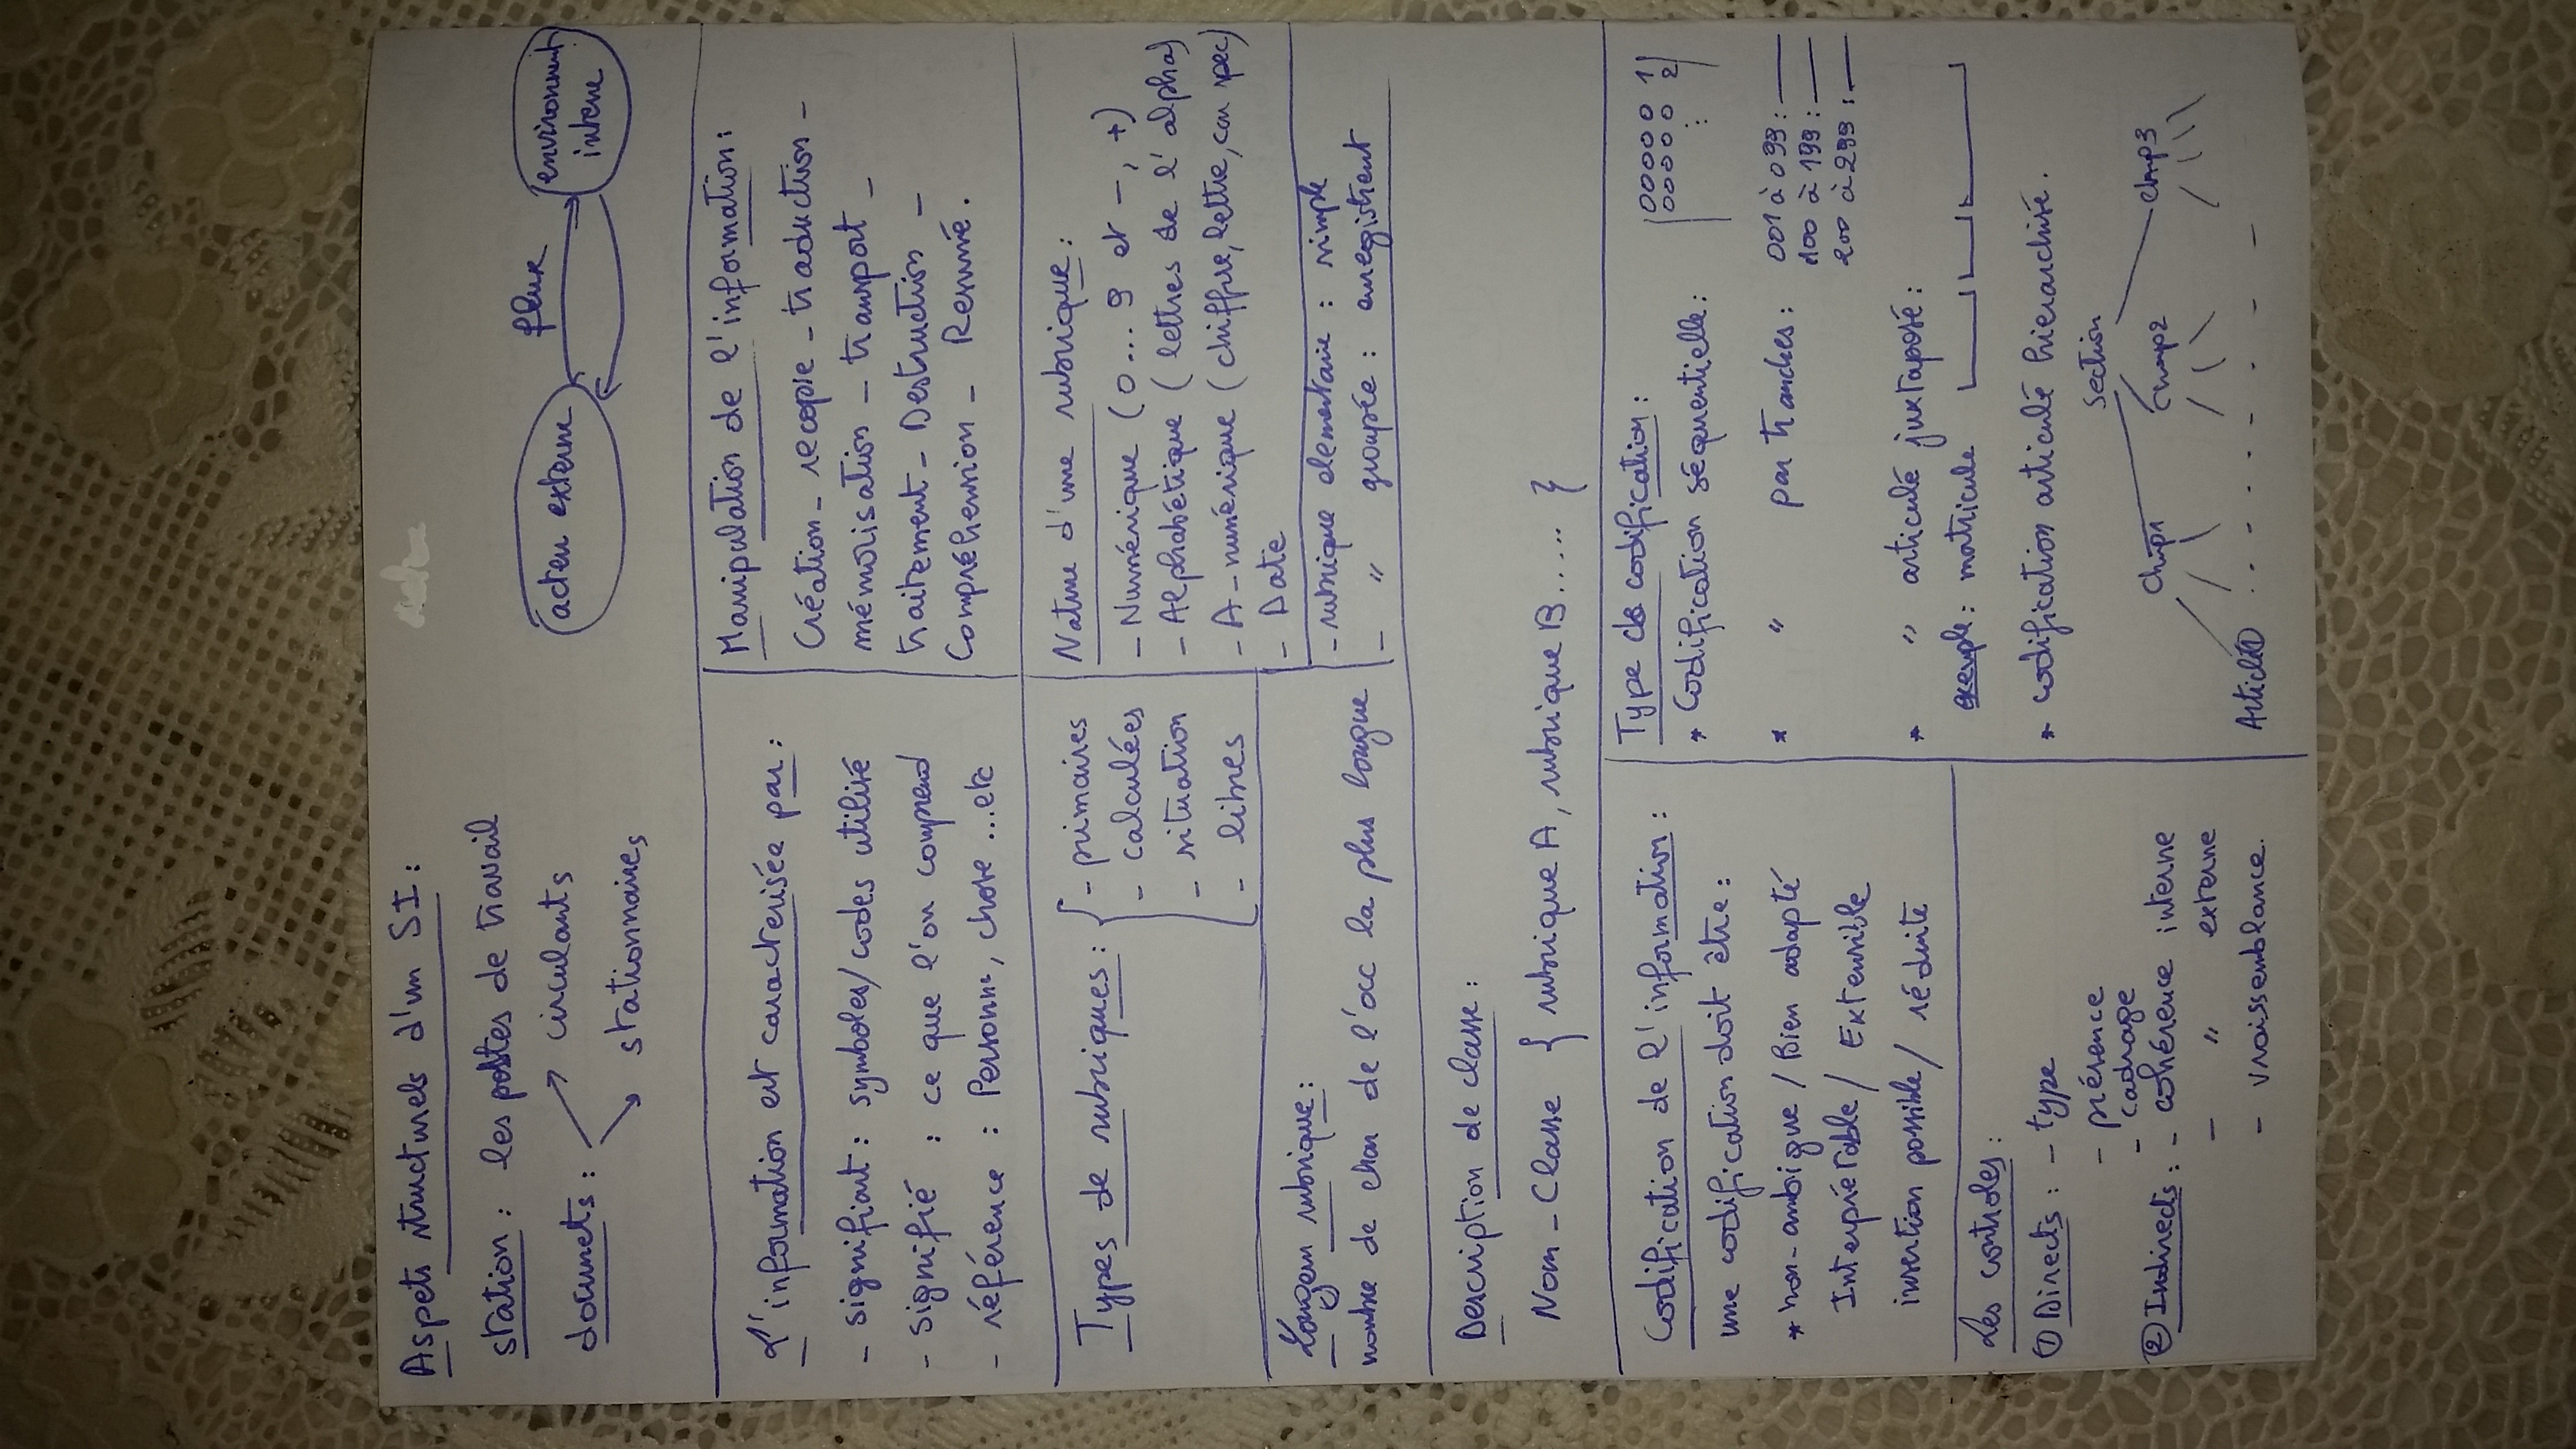 Aspets structurels d'un SI :
station : les postes de travail
documets :
circulants
stationnaires
acteu externe
flux
environnent
interne
L'information est caracterisée par :
- signifiant : symboles/codes utilisé
- signifié : ce que l'on comprend
- référence : Personne, chose ...etc
Manipulation de l'information :
Création - recopie - traduction -
mémorisation - transport -
traitement - Destruction -
Compréhension - Resumé.
Types de rubriques :
- primaires
- calculées
- situation
- libres
Nature d'une rubrique :
- Numérique (0... 9 et -, +)
- Alphabétique (lettres de l'alpha)
- A-numérique (chiffre, lettre, car spec)
- Date
Longeur rubrique :
nombre de char de l'occ la plus longue
- rubrique elementaire : simple
- " groupée : enregistrent
Description de classe :
Nom - Classe { rubrique A, rubrique B..... }
Codification de l'information :
une codification doit être :
* non-ambigue / Bien adapté
Interprétable / Extensible
insertion possible / réduite
Les controles :
① Directs : - type
- présence
- cadrage
② Indirects : - cohérence interne
- " externe
- vraissemblance.
Type de codification :
* Codification séquentielle :
00000 1
00000 2
:
* " par tranches : 001 à 099 :
100 à 199 :
200 à 299 :
* " articulé juxtaposé :
exemple : matricule
* codification articulé hierarchisé.
Section
Chap1 Chap2 Chap3
Article①